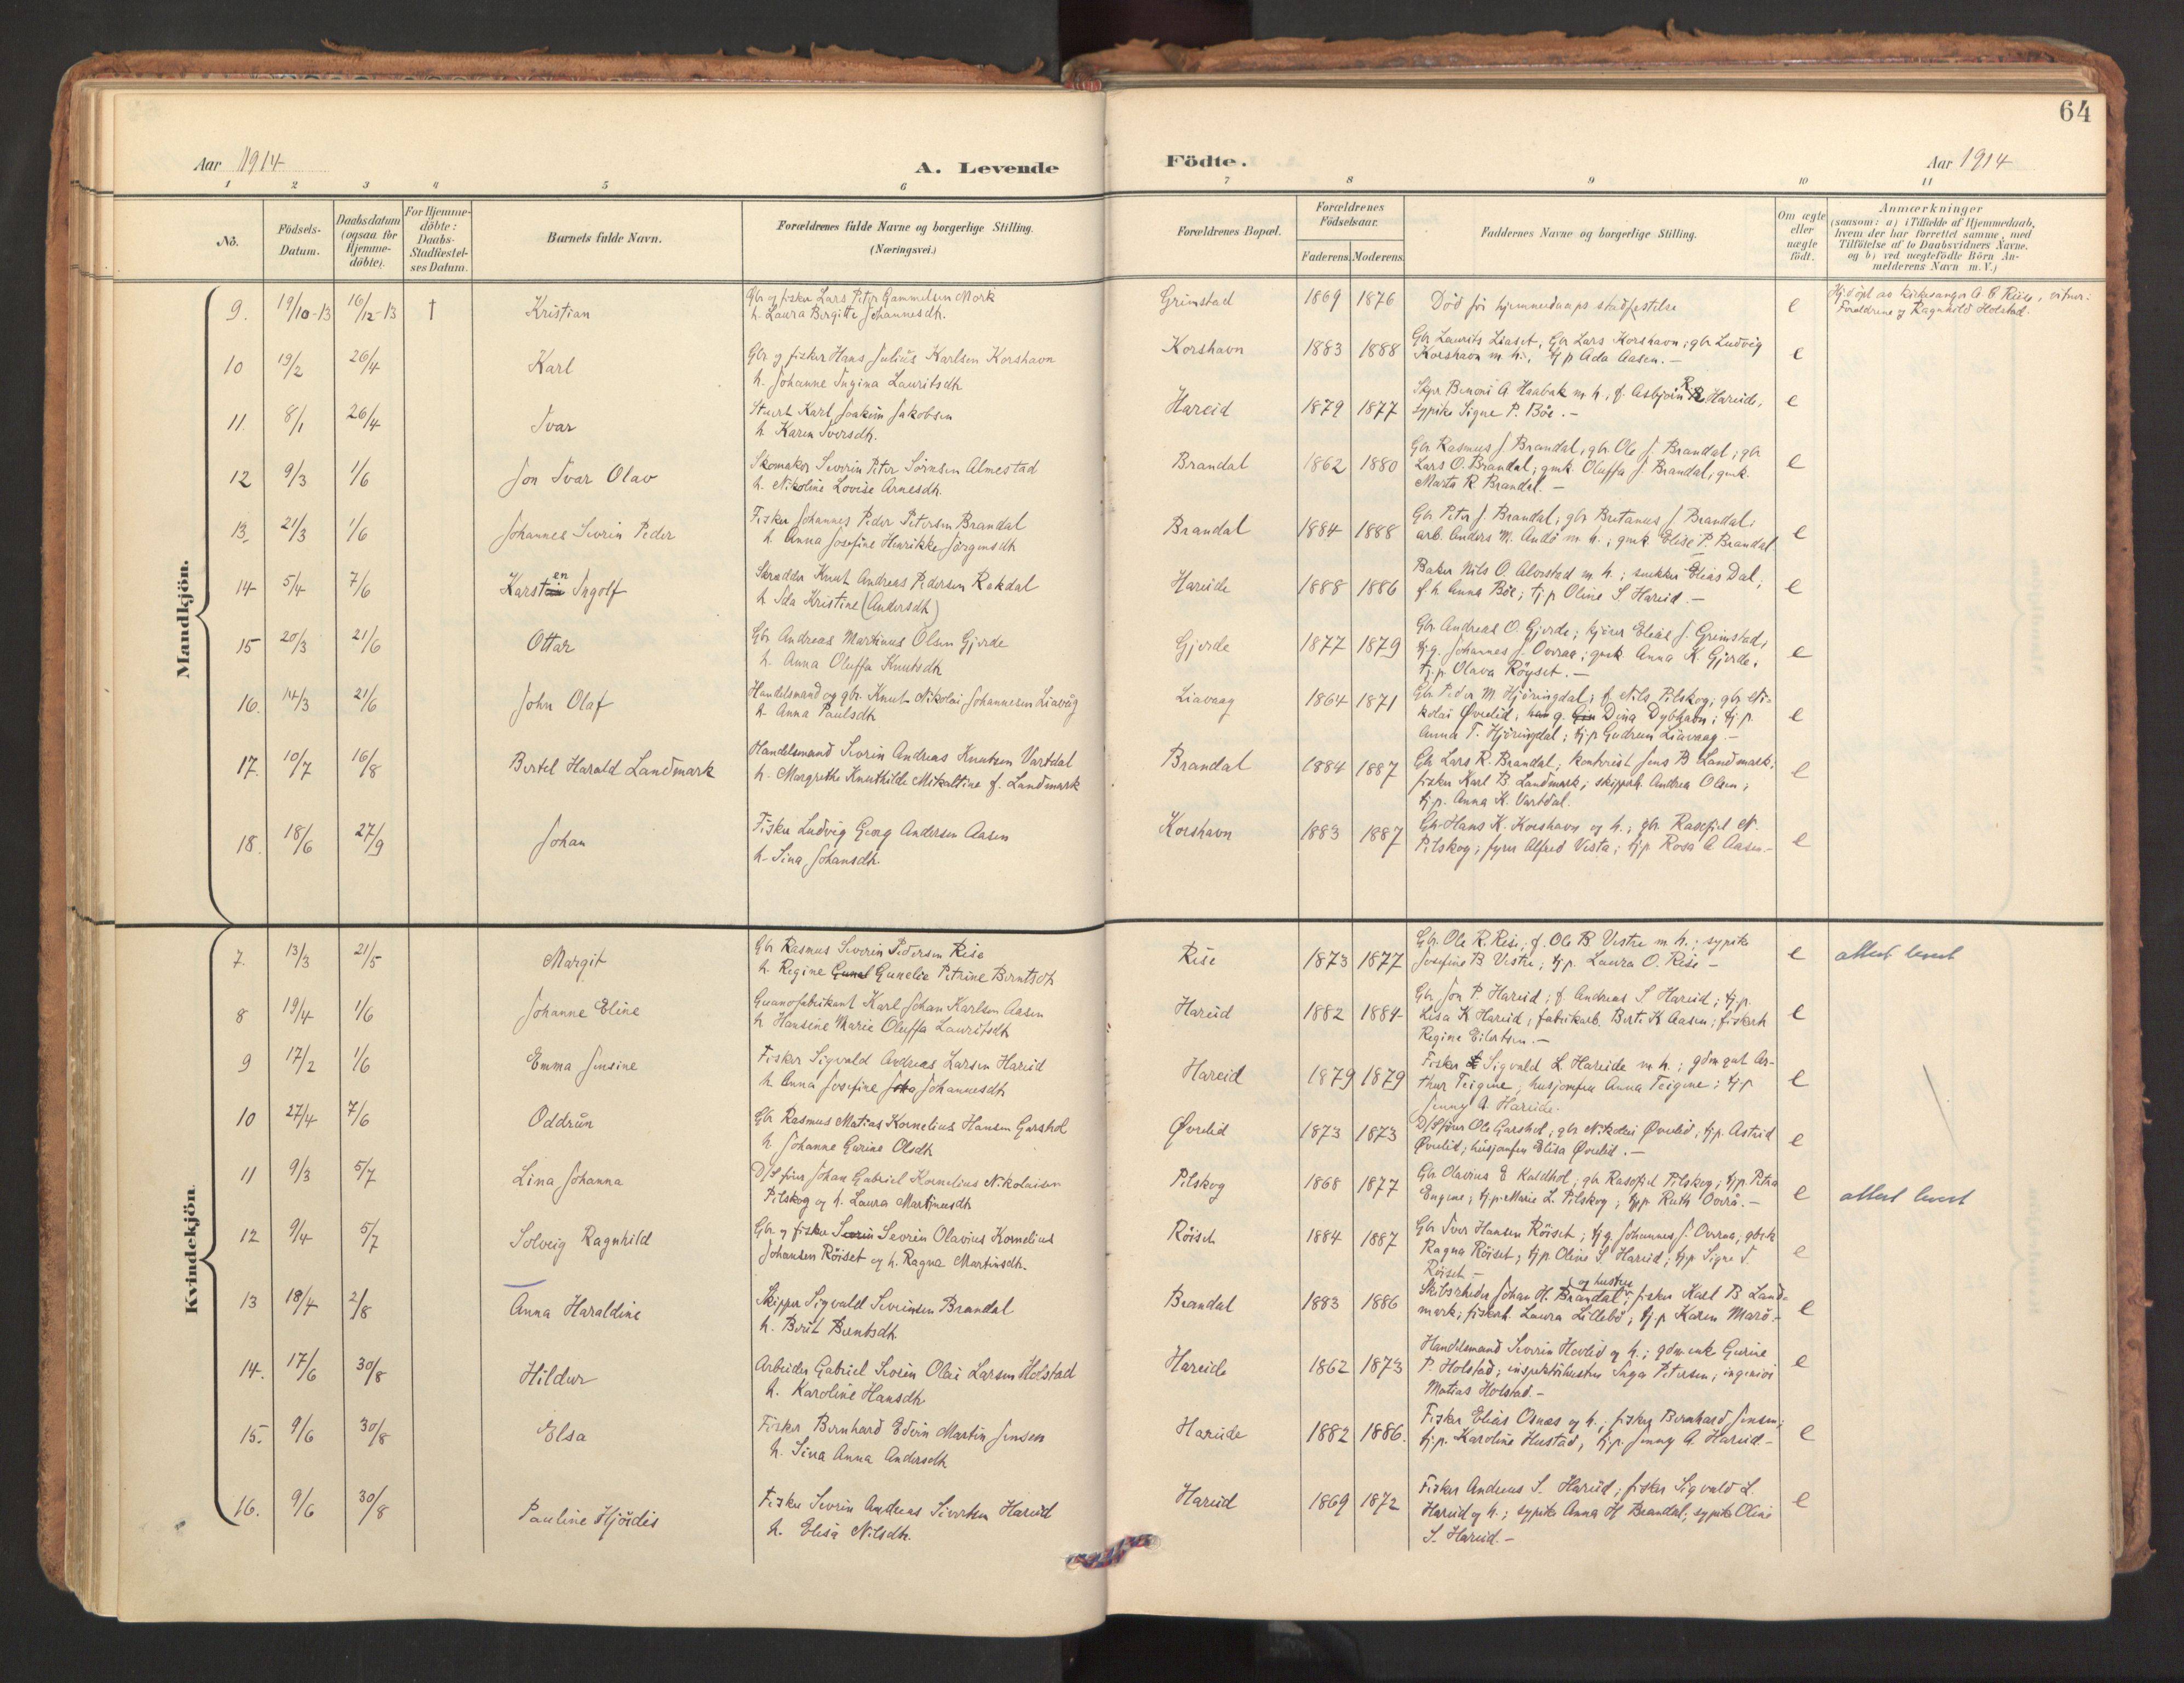 64
Aar 1914
A. Levende
Födte.
Aar 1914
1 2 3 4 5 6 7 8 9 10 11
No.
Födsels-Datum.
Daabsdatum (ogsaa for Hjemme-döbte).
For Hjemme-döbte: Daabs-Stadfæstel-ses Datum.
Barnets fulde Navn.
Forældrenes fulde Navne og borgerlige Stilling.
(Næringsvei.)
Forældrenes Bopæl.
Forældrenes Födselsaar.
Faderens. Moderens.
Faddernes Navne og borgerlige Stilling.
Om ægte eller uægte födt.
Anmærkninger
(saasom: a) i Tilfælde af Hjemmedaab,
hvem der har forrettet samme, med
Tilföielse af to Daabsvidners Navne,
og b) ved uægtefödte Börn An-
melderens Navn m. V.)
Mandkjön.
9. 19/10-13 16/12-13 † Kristian
Gbr og fisker Lars Peter Gammelsen Mork
h. Laura Birgitte Johannesdh.
Grimstad 1869 1876
Död før hjemmedaaps stadfestelse
e
Hj.döpt av kirkesanger A. B. Riise, vitner:
Foreldrene og Ragnhild Holstad.
10 19/2 26/4 Karl
Gbr og fisker Hans Julius Karlsen Korshavn
h. Johanne Ingina Lauritsdh
Korshavn 1883 1888
Gbr Laurits Liaset, Gbr Lars Korshavn; gbr Ludvig
Korshavn m. h., tj p Ada Aasen. -
e
11. 8/1 26/4 Ivar
Stuert Karl Joakim Jakobsen
h Karen Iversdh.
Hareid 1879 1877
Skpr Benoni A Haabak m. h., f. Asbjörn R Hareide,
sypike Signe P. Böe. -
e
12 9/3 1/6 Jon Ivar Olav
Skomaker Severin Peter Sörnsen Almestad
h. Nikoline Lovise Arnesdh.
Brandal 1862 1880
Gbr Rasmus J. Brandal, gbr Ole J. Brandal; gbr
Lars O. Brandal; gmk. Oluffa J Brandal; gmk.
Marta R Brandal. -
e
13. 21/3 1/6 Johannes Severin Peder
Fisker Johannes Peder Petersen Brandal
h Anna Josefine Henrikke Jörgensdh
Brandal 1884 1888
Gbr Peter J. Brandal; gbr Bretanus J Brandal;
arb. Anders M. Andö m h.; gmk. Elise P. Brandal
e
14 5/4 7/6 Karsten Ingolf
Skrædder Knut Andreas Pedersen Rakdal
h Ida Kristine (Andersdh)
Hareide 1888 1886
Baker Nils O. Alvestad m. h.; snekker Elias Dal;
f. h. Anna Böe; tj p Oline S. Hareid. -
e
15 20/3 21/6 Ottar
Gbr Andreas Martinus Olsen Gjerde
h. Anna Oluffa Knutsdh
Gjerde 1877 1879
Gbr Andreas O. Gjerde; kjörer Elias J. Grimstad,
tj. g. Johannes J. Overaa; gmk Anna K. Gjerde,
tj. p Olava Röyset. -
e
16. 14/3 21/6 John Olaf
Handelsmand og gbr. Knut Nikolai Johannesen Liavåg
h. Anna Paulsdh
Liavaag 1864 1871
Gbr Peder M. Hjöringdal; f Nils Pilskog; gbr Ni-
kolai Øvrelid; g. Dina Dybhavn; tj. p.
Anna T. Hjöringdal; tj p Gudrun Liavaag. -
e
17. 10/7 16/8 Bertel Harald Landmark
Handelsmand Severin Andreas Knutsen Vartdal
h. Margrethe Knuthilde Mikaltine f. Landmark
Brandal 1884 1887
Gbr Lars R. Brandal; kontorist Jens B Landmark;
fisker Karl B. Landmark; skipperh. Andrea Olsen;
tj. p. Anna K. Vartdal.
e
18. 18/6 27/9 Johan
Fisker Ludvig Georg Andersen Aasen
h. Lina Johansdh.
Korshavn 1883 1887
Gbr Hans K. Korshavn og h.; gbr. Rasofiel N.
Pilskog; fyrer Alfred Vesta; tj p Rosa A Aasen -
e
Kvindekjön.
7. 13/3 21/5 Margit
Gbr Rasmus Severin Pedersen Rise
h. Regine Gunelie Petrine Berntsdh
Rise 1873 1877
Gbr. Ole R. Rise; f. Ole B. Vestre m. h.; sypike
Josefine B Vestre; tj p. Laura O. Rise -
e
attest levert
8 19/4 1/6 Johanne Eline
Guanofabrikant Karl Johan Karlsen Aasen
h Hansine Marie Oluffa Lauritsdh
Hareid 1882 1884
Gbr Jon P. Hareid; f. Andreas S Hareid; tj. p.
Lisa K Hareid, fabrikarb. Berte K Aasen; fiskerh
Regine Eilertsen. -
e
9 17/2 1/6 Emma Jensine
Fisker Sigvald Andreas Larsen Hareid
h Anna Josefine Johannesdh
Hareid 1879 1879
Fisker Sigvald L Hareide m. h.; gdm gut Ar-
thur Teigene; husjomfru Anna Teigene; tj p
Jenny A. Hareide.
e
10 27/4 7/6 Oddrun
Gbr Rasmus Matias Kornelius Hansen Garshol
h. Johanne Gurine Olsdh
Øvrelid 1873 1873
D/S förer Ole Garshol; gbr Nikolai Øvrelid, tj. p. Astrid
Øvrelid; husjomfru Elisa Øvrelid. -
e
11 9/3 5/7 Lina Johanna
D/S förer Johan Gabriel Kornelius Nikolaisen
Pilskog og h. Laura Martinusdh
Pilskog 1868 1877
Gbr Olavius E Kaldhol, gbr Rasofiel Pilskog; tj p. Petra
Eugene; tj. p. Marie L. Pilskog; tj p Ruth Overå. -
e
attest levert
12 9/4 5/7 Solveig Ragnhild
Gbr og fisker Severin Olavius Kornelius
Johansen Röiset og h. Ragna Martinsdh.
Röiset 1884 1887
Gbr Iver Hansen Röiset; tj g. Johannes J. Overaa; gbrk
Ragna Röiset; tj p. Oline S. Hareid; tj p Signe I.
Röiset -
e
13 18/4 2/8 Anna Haraldine
Skipper Sigvald Severinsen Brandal
h. Berit Berntsdh
Brandal 1883 1886
Skibsrheder Johan H. Brandal og hustru; fisker Karl B. Land-
mark; fiskerh. Laura Lillebö; tj. p Karen Marö. -
e
14. 17/6 30/8 Hildur
Arbeider Gabriel Severin Olai Larsen Holstad
h. Karoline Hansdh
Hareide 1862 1873
Handelsmand Severin Hovlid og h.; gdm enke Gurine
P. Holstad; inspektörhustru Inga Petersen; ingeniör
Matias Holstad. -
e
15. 9/6 30/8 Elsa
Fisker Bernhard Edvin Martin Jensen
h. Lina Anna Andersdh
Hareide 1882 1886.
Fisker Elias Osnes og h.; fisker Bernhard Jensen;
tj. p. Karoline Hustad, tj. p. Jenny A. Hareid -
e
16. 9/6 30/8 Pauline Hjördis
Fisker Severin Andreas Sivertsen Hareid
h. Elisa Nilsdh.
Hareid 1869 1872
Fisker Andreas S. Hareid; fisker Sigvald L.
Hareid og h.; sypike Anna H Brandal; sypike Oline
S. Hareid. -
e